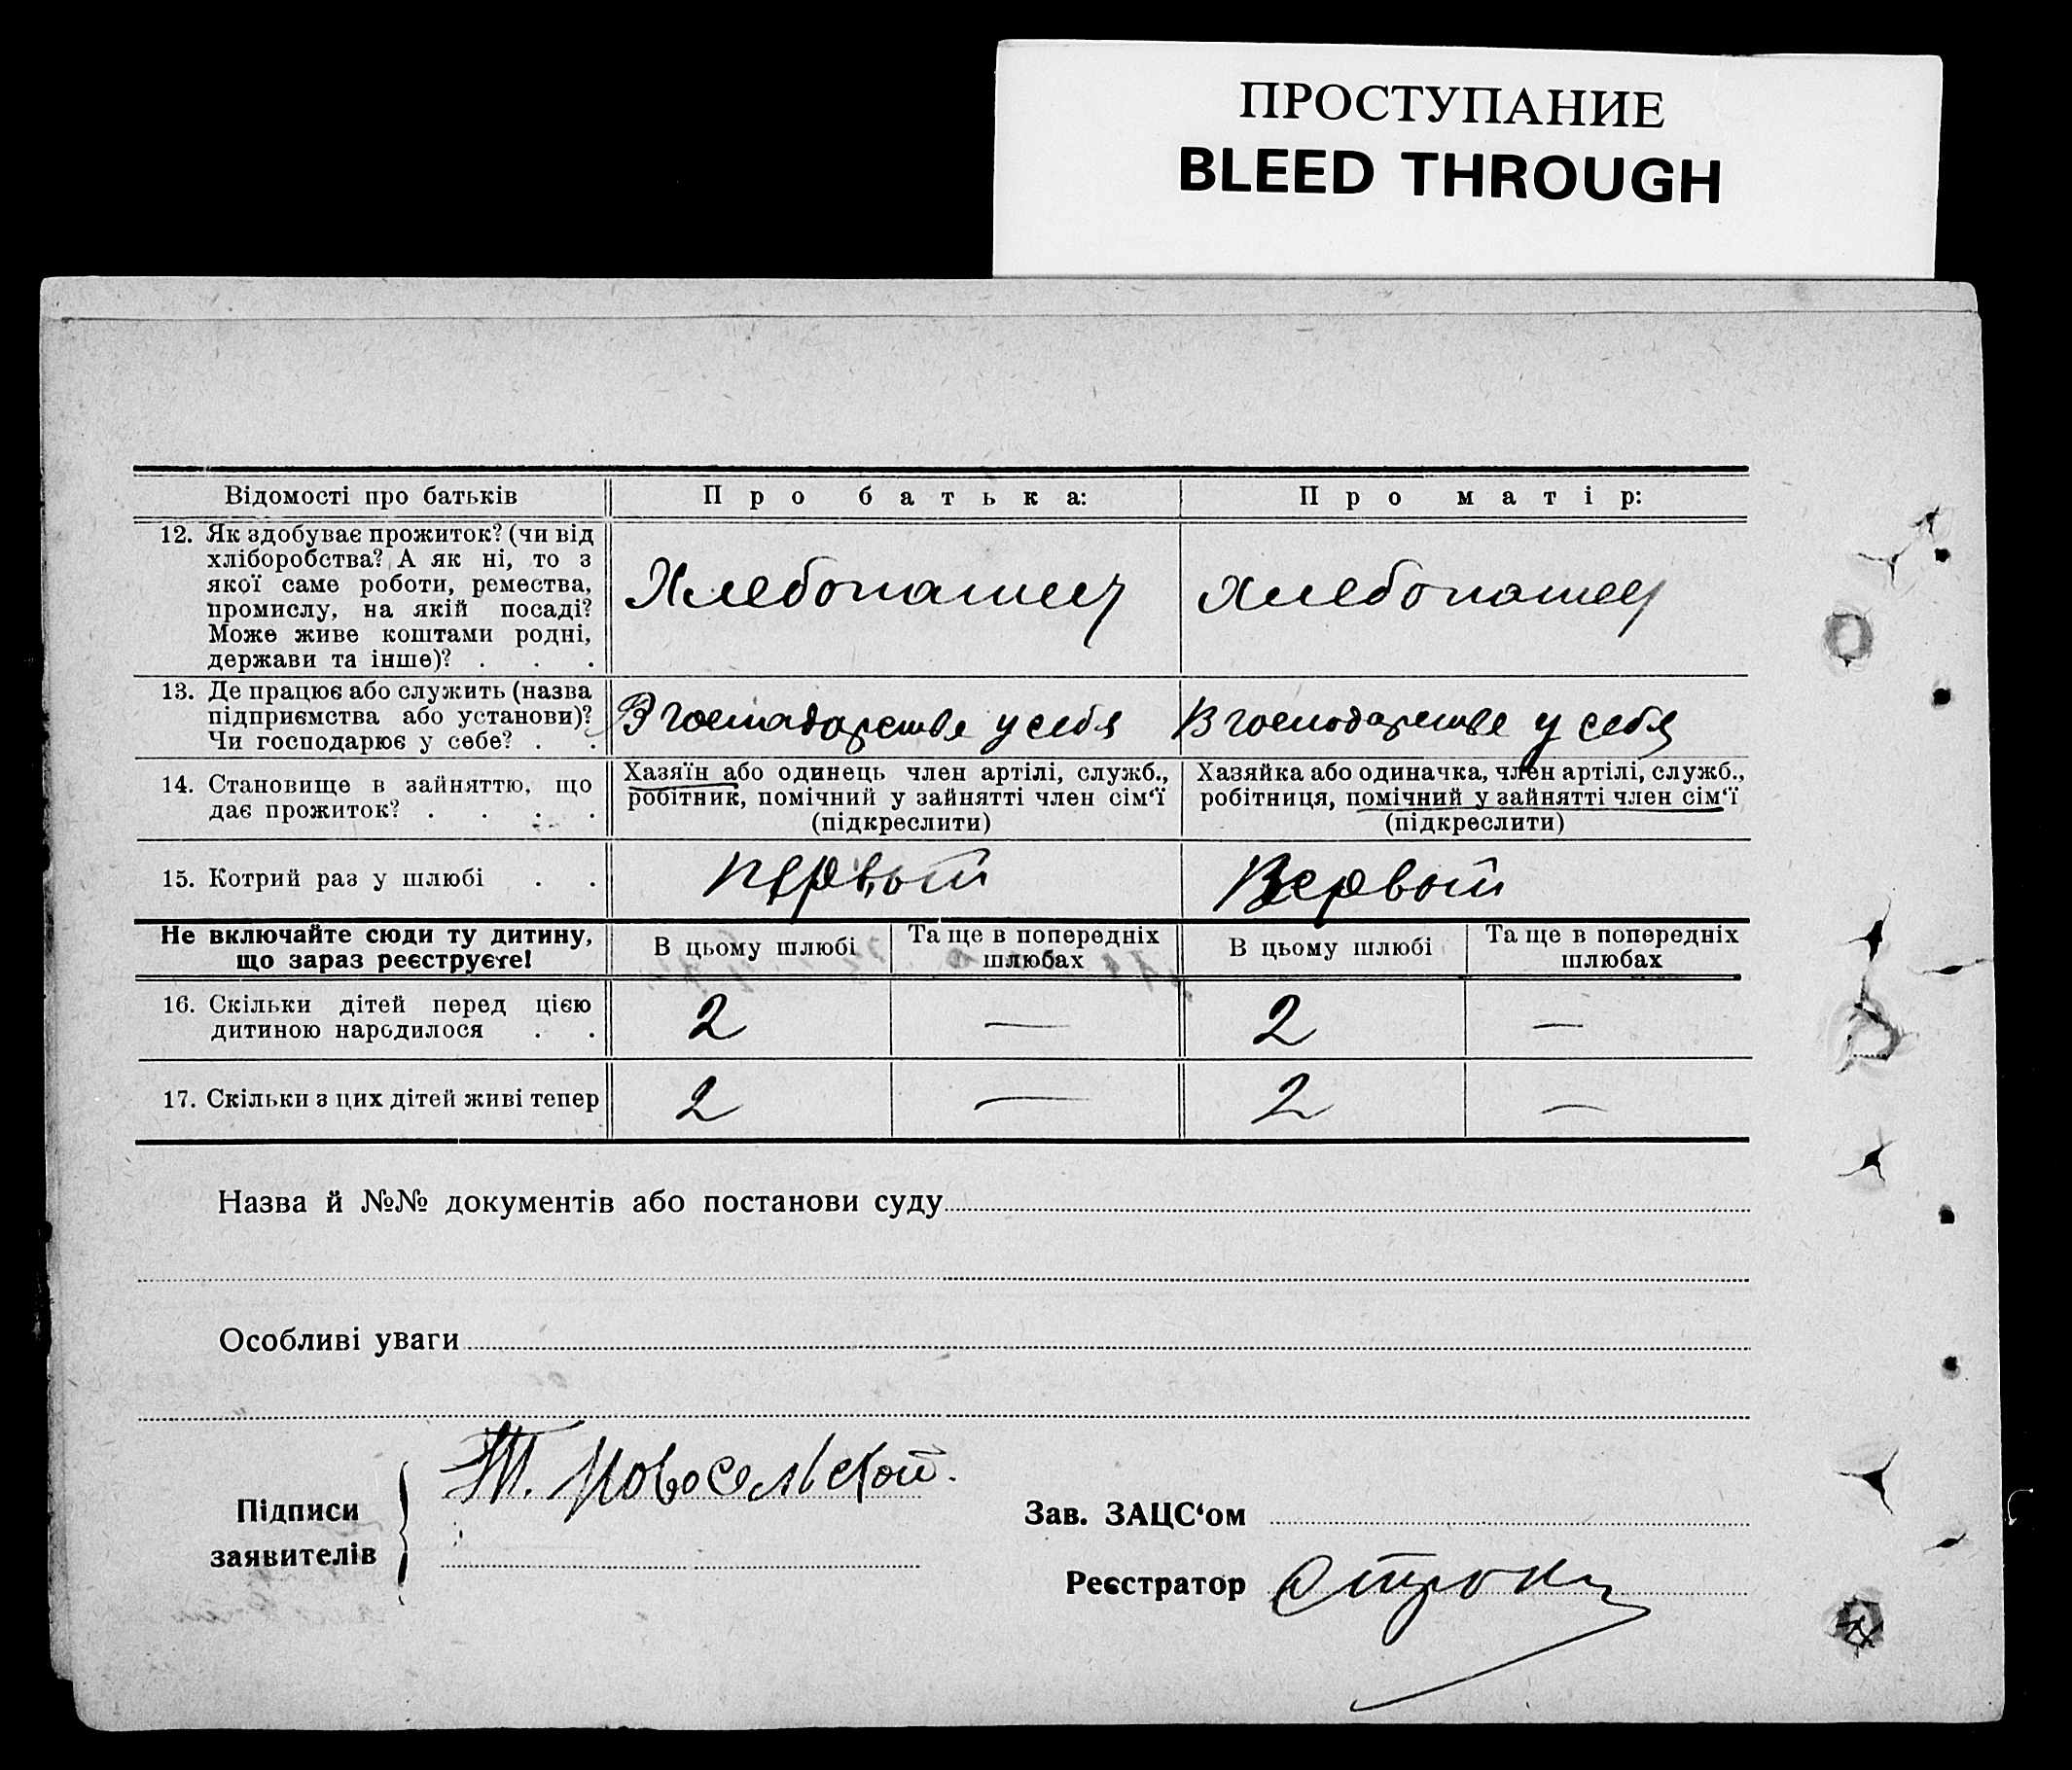 ПРОСТУПАНИЕ
BLEED THROUGH
Відомості про батьків
Про батька:
Про матір:
12. Як здобуває прожиток? (чи від
хліборобства? А як ні, то з
якої саме роботи, ремества,
промислу, на якій посаді?
Може живе коштами родні,
держави та інше)? . . .
Хлебопашец
хлебопашец
13. Де працює або служить (назва
підприємства або установи)?
Чи господарює у себе? . .
В господарстве у себя
В господарстве у себя
14. Становище в зайняттю, що
дає прожиток? . . . .
Хазяїн або одинець член артілі, служб.,
робітник, помічний у зайнятті член сім‘ї
(підкреслити)
Хазяйка або одиначка, член артілі, служб.,
робітниця, помічний у зайнятті член сім‘ї
(підкреслити)
15. Котрий раз у шлюбі . .
первый
Первый
Не включайте сюди ту дитину,
що зараз реєструєте!
В цьому шлюбі
Та ще в попередніх
шлюбах
В цьому шлюбі
Та ще в попередніх
шлюбах
16. Скільки дітей перед цією
дитиною народилося . .
2
—
2
—
17. Скільки з цих дітей живі тепер
2
—
2
—
Назва й №№ документів або постанови суду
Особливі уваги
Підписи
заявителів
Новосельской.
Зав. ЗАЦС‘ом
Реєстратор